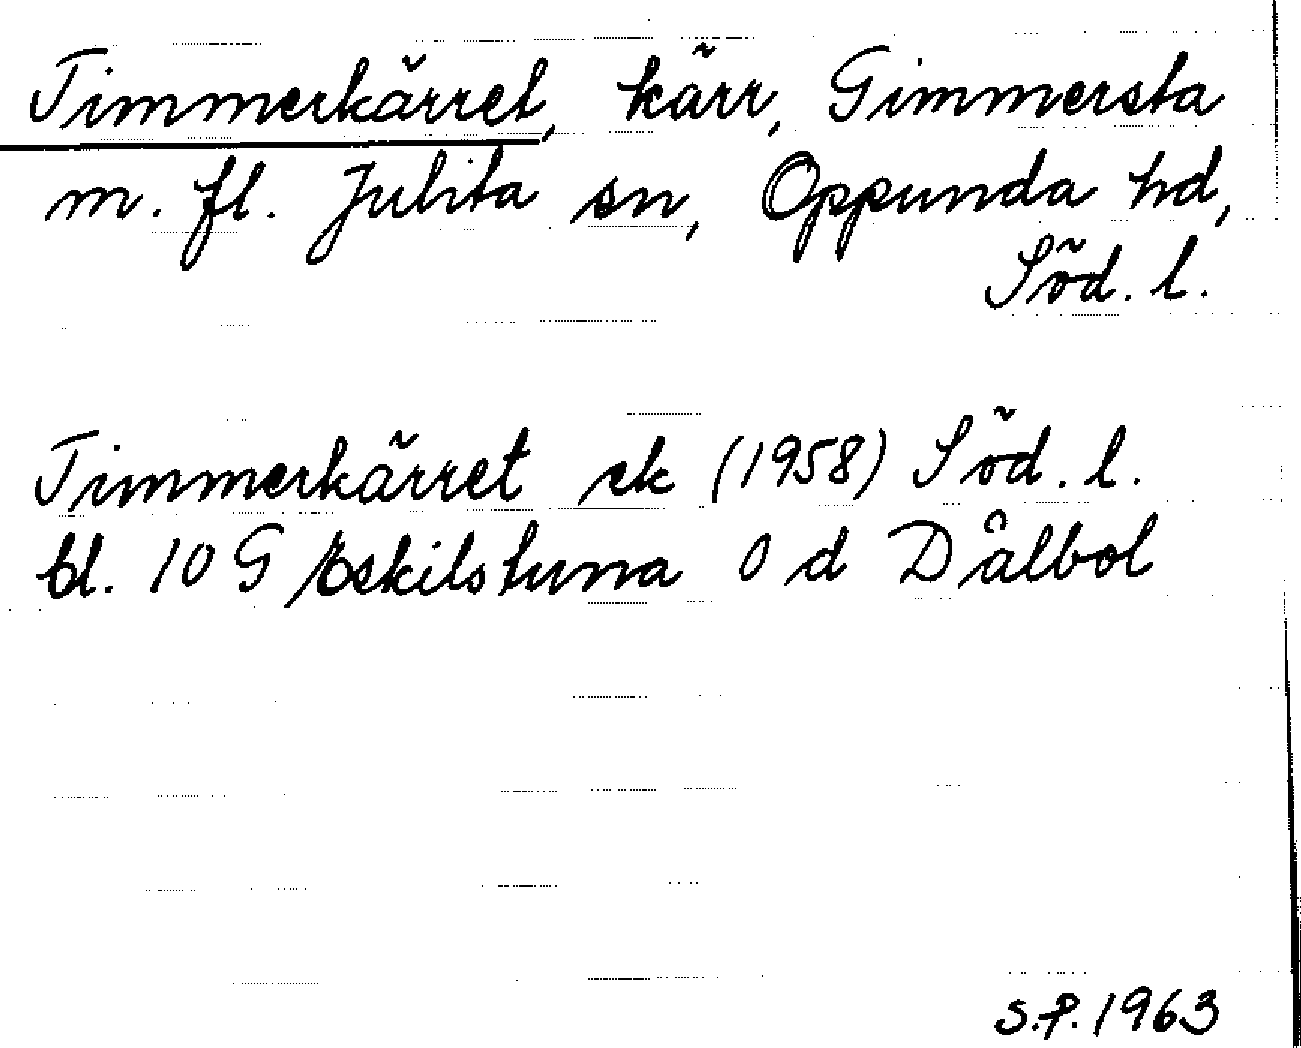 Timmerkärret, kärr, Gimmersta
m. fl. Julita sn, Oppunda hd,
Söd. l.
Timmerkärret ek (1958) Söd. l.
bl. 10 G Eskilstuna 0 d Dålbol
S.P. 1963